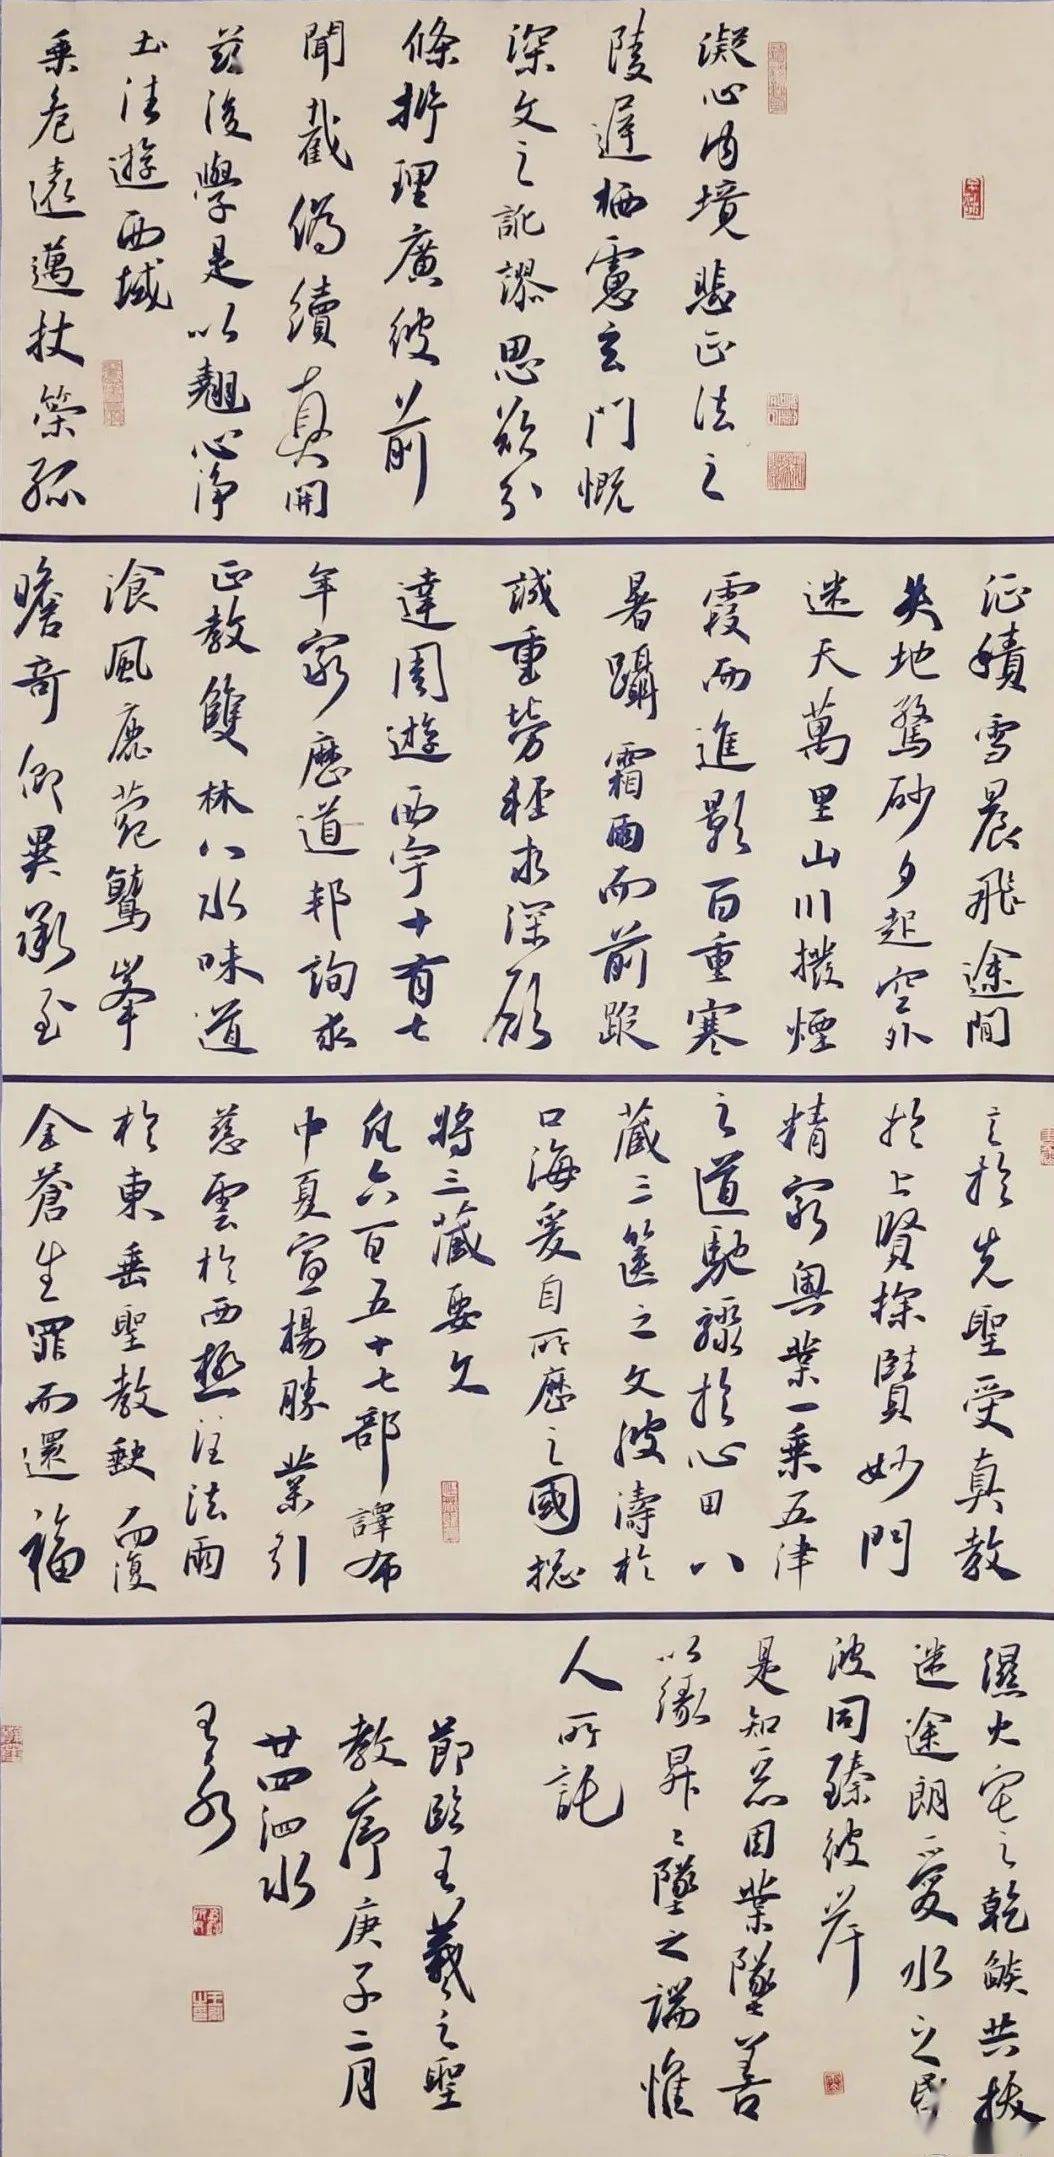 凝心内境悲正法之
陵遲栖慮玄門慨
深文之訛謬思欲分
條析理廣彼前
聞截偽續真開
茲後學是以翹心淨
土法遊西域
乗危遠邁杖策孤
征積雪晨飛途間
失地驚砂夕起空外
迷天萬里山川撥煙
霞而進影百重寒
暑躡霜雨而前蹤
誠重勞輕求深願
達周遊西宇十有七
年窮歷道邦詢求
正教雙林八水味道
飡風鹿菀鷲峯
瞻奇仰異承至
言於先聖受真教
於上賢探賾妙門
精窮奧業一乗五律
之道馳驟於心田八
藏三篋之文波濤於
口海爰自所歷之國揔
將三藏要文
凡六百五十七部譯布
中夏宣揚勝業引
慈雲於西極注法雨
於東垂聖教缺而復
全蒼生罪而還福
濕火宅之乾燄共拔
迷途朗愛水之昏
波同臻彼岸
是知惡因業墜善
以緣昇昇墜之端惟
人所託
節臨王羲之聖
教序庚子二月
廿四泗水